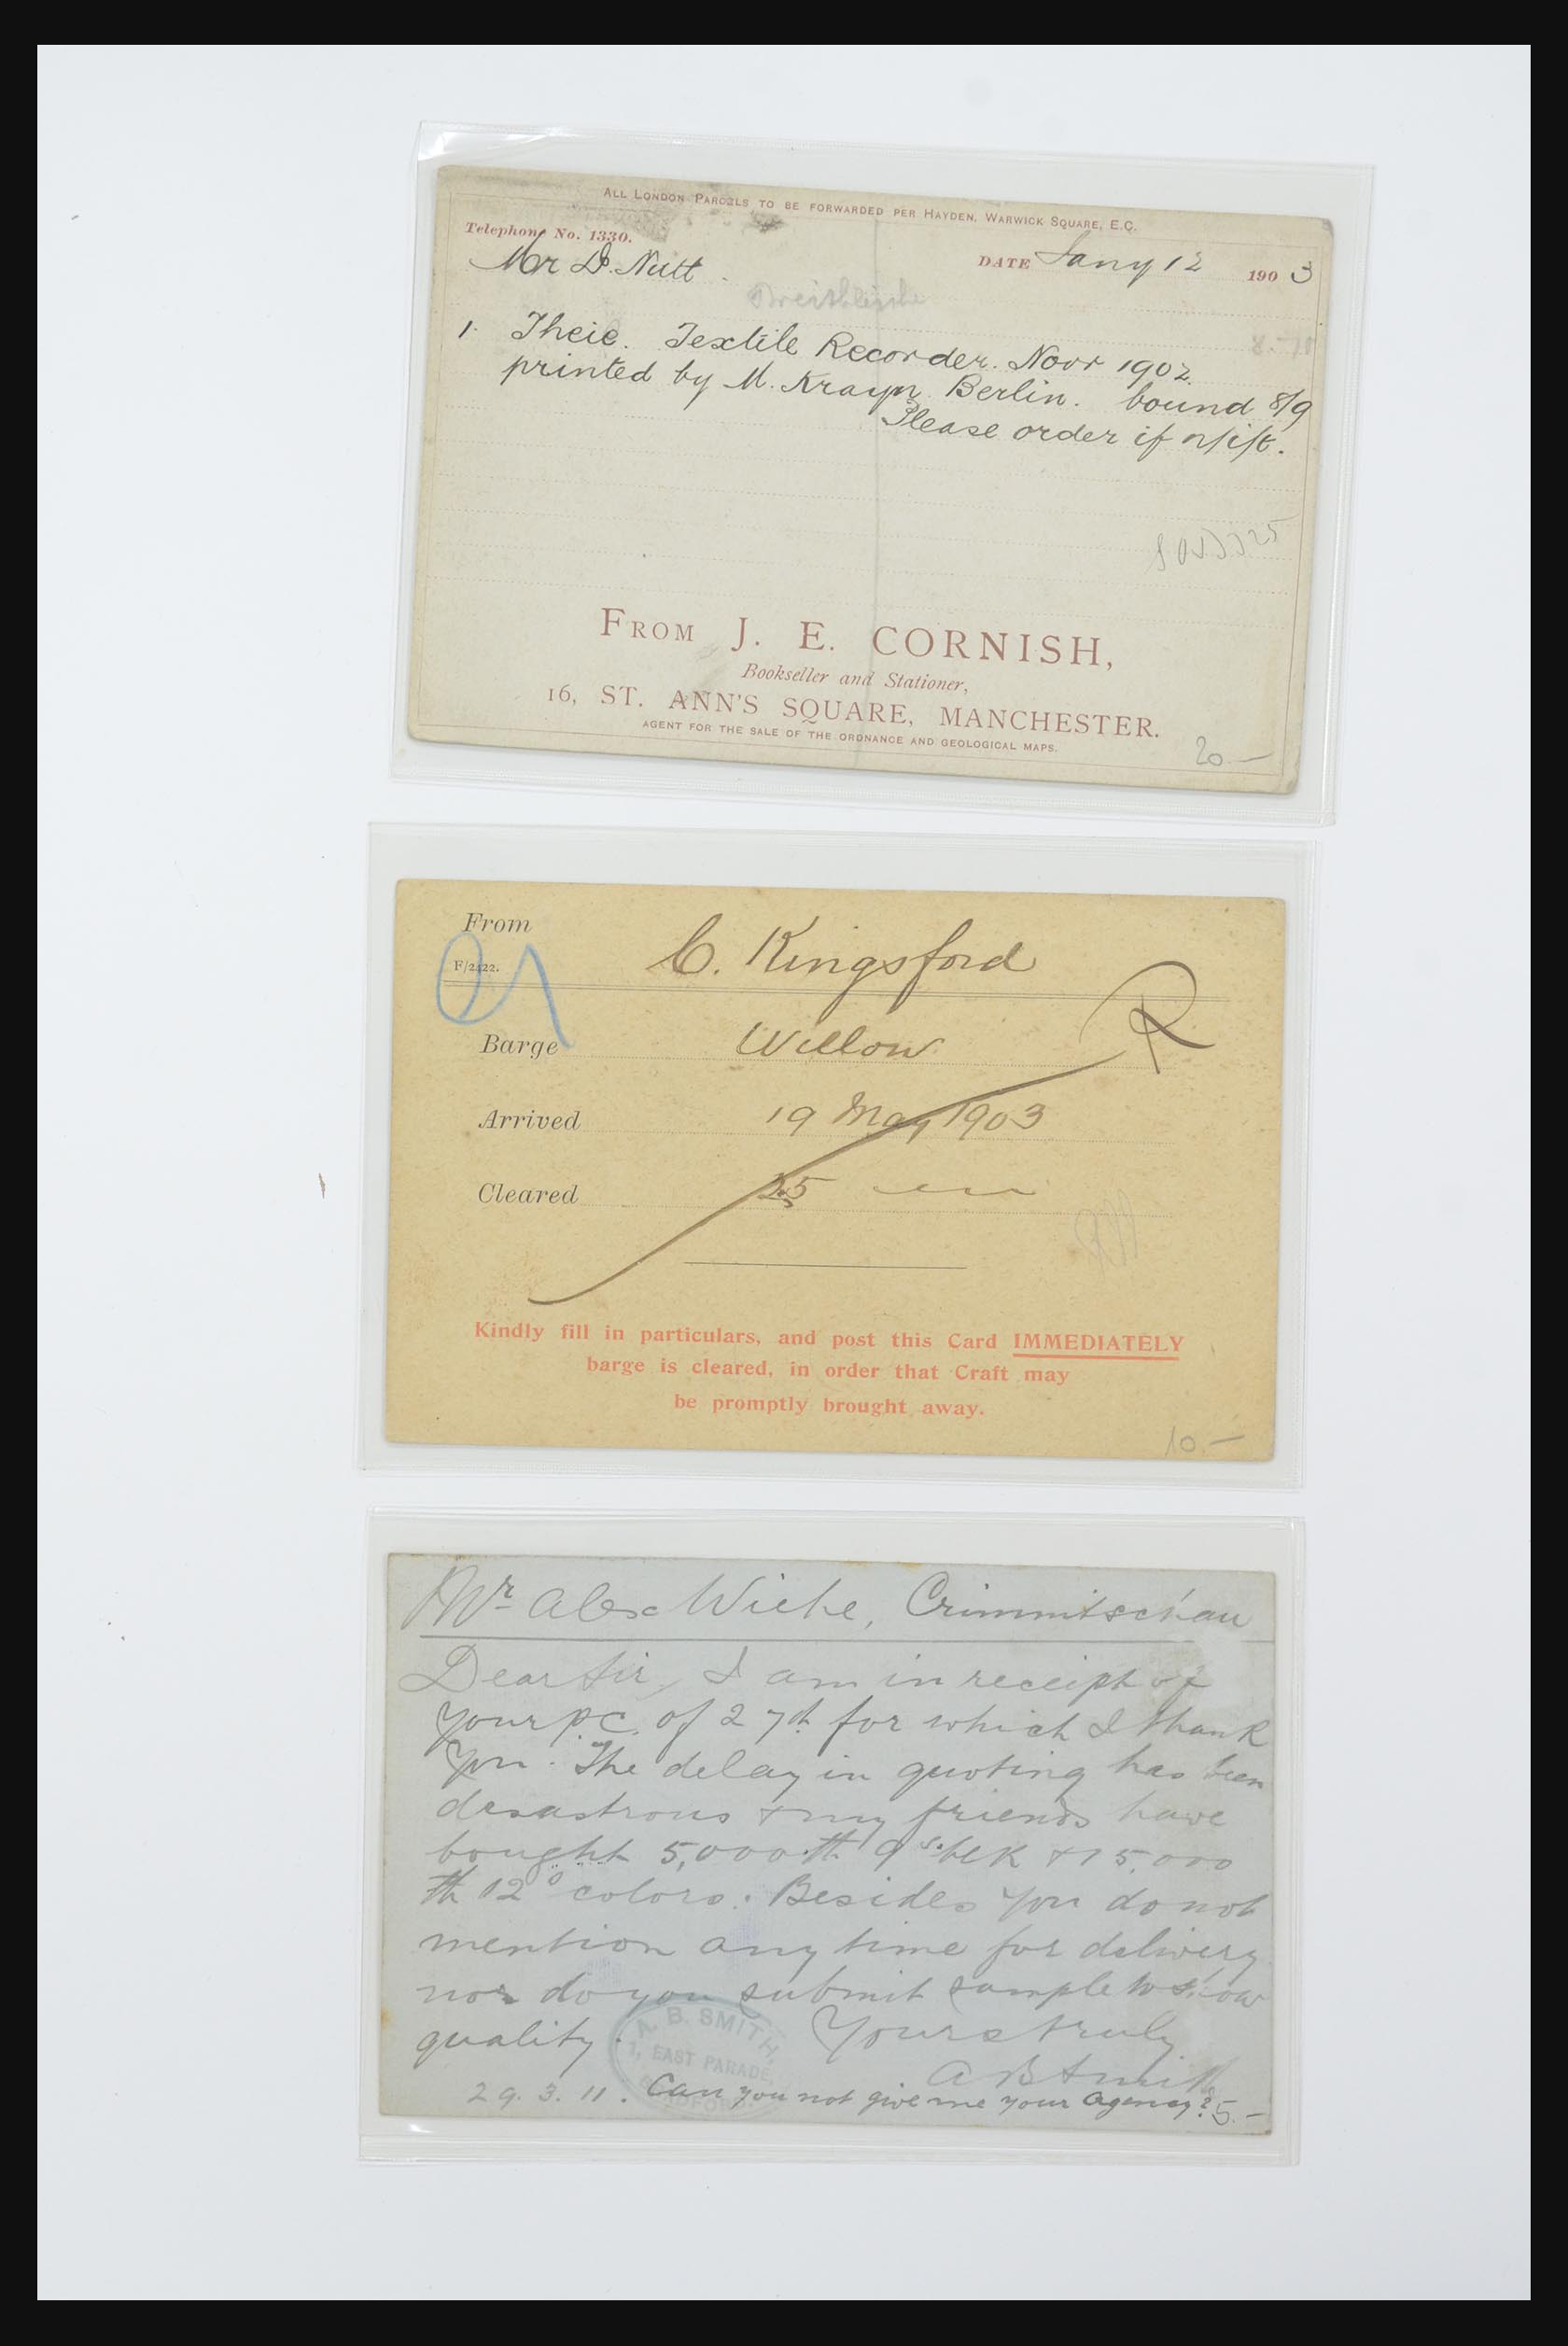 ALL LONDON PARCELS TO BE FORWARDED PER HAYDEN, WARWICK SQUARE, E.C.
Telephone No. 1330.
Mr D. Nutt.
DATE Jany 12 1903
1. Theie. Textile Recorder. Novr 1902.
printed by M. Krayn Berlin. bound 8/9
Please order if n/i/s.
FROM J. E. CORNISH,
Bookseller and Stationer,
16, ST. ANN'S SQUARE, MANCHESTER.
AGENT FOR THE SALE OF THE ORDNANCE AND GEOLOGICAL MAPS.
20.—
From C. Kingsford
F/2422.
R
Barge Willow
Arrived 19 May 1903
Cleared 25
Kindly fill in particulars, and post this Card IMMEDIATELY
barge is cleared, in order that Craft may
be promptly brought away.
10.—
Mr Alex Wiehe, Crimmitschau
Dear Sir, I am in receipt of
your P.C. of 27th for which I thank
you. The delay in quoting has been
desastrous & my friends have
bought 5,000 th 9s blk & 15,000
th 12º colors. Besides you do not
mention any time for delivery
nor do you submit sample to show
quality. Yours truly
A B Smith
A. B. SMITH,
1, EAST PARADE,
BRADFORD.
29.3.11. Can you not give me your agency?
5.—